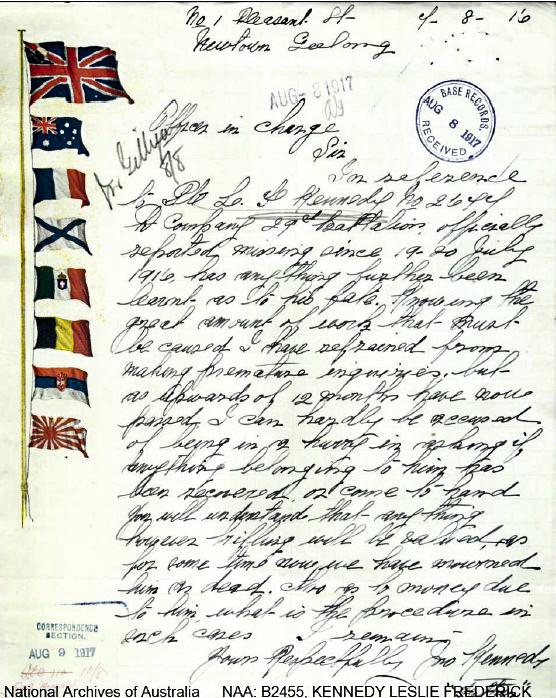 No 1 Pleasant St 4-8-16
Newtown Geelong
AUG-8 1917
BASE RECORDS
AUG 8 1917
RECEIVED
8/8
Officer in Charge
Sir
In reference
to Pte L. F Kennedy No 2644
A Company 29th Battalion, officially
reported missing since 19-20 July
1916, has anything further been
learnt as to his fate. Knowing the
great amount of work that must
be caused I have refrained from
making premature inquiries, but
as upwards of 12 months have now
passed, I can hardly be accused
of being in a hurry in asking if
anything belonging to him has
been recovered, or come to hand
You will understand that anything
however trifling will be valued, as
for some time now we have mourned
him as dead. Also as to money due
to him what is the procedure in
such cases
I remain
Yours Respectfully Jno Kennedy
CORRESPONDENCE
SECTION.
AUG 9 1917
National Archives of Australia NAA: B2455, KENNEDY LESLIE FREDERICK